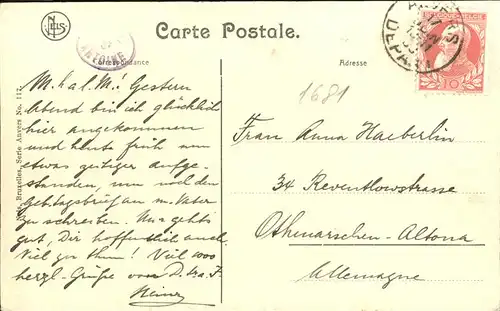 NELS
Carte Postale.
Correspondance
Adresse
ANTOINE
DEPART
10
1681
Nels, Bruxelles, Serie Anvers No. 112.
M. h. a. l. M.! Gestern
abend bin ich glücklich
hier angekommen
und heute früh um
etwas zeitiger aufge-
standen, um noch den
Gebtagsbrief an m. Vater
zu schreiben. Uns gehts
gut, Dir hoffentlich auch.
Viel 1000
herzl. Grüße von D. tr. F.
Heinz
Frau Anna Haeberlin
34 Reventlowstrasse
Othmarschen-Altona
Allemagne